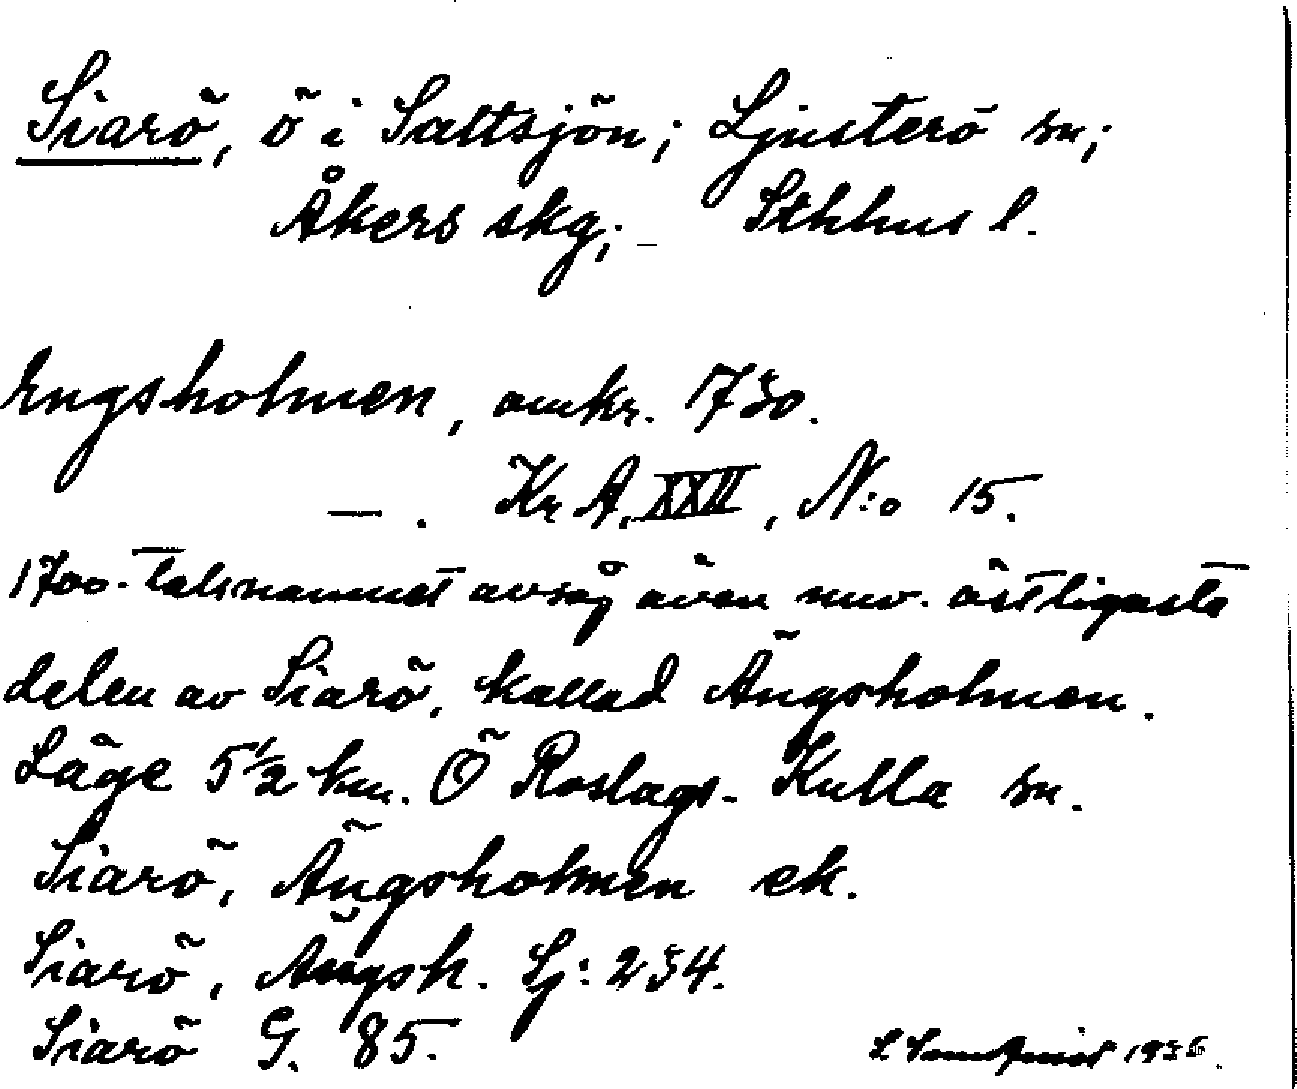 Siarö, ö i Saltsjön; Ljusterö sn;
Åkers skg; _ Sthlms l.
Engsholmen, omkr. 1730.
— . Kr A, XXII, N:o 15.
1700-talsnamnet avsåg även nuv. östligaste
delen av Siarö, kallad Ängsholmen.
Läge 5 1/2 km. Ö Roslags-Kulla sn.
Siarö, Ängsholmen ek.
Siarö, Ängsh. Lj: 234.
Siarö G. 85.
1936